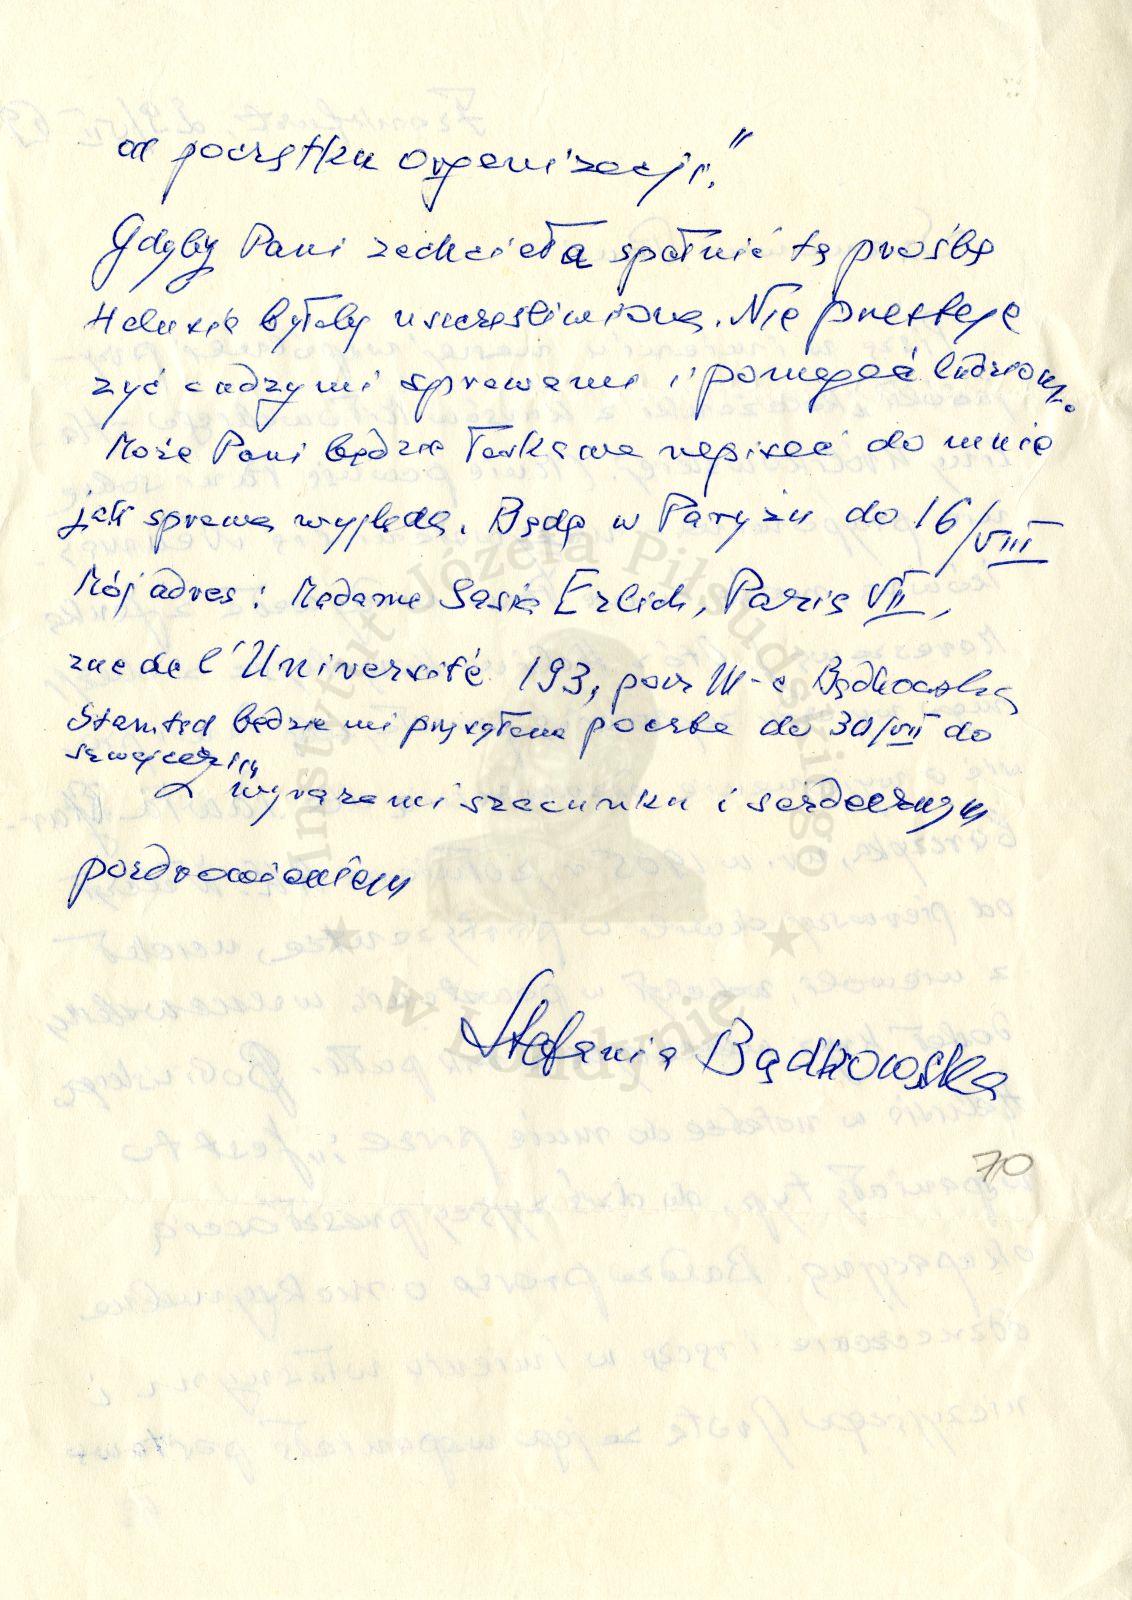 od początku organizacji."
Gdyby Pani zechciała spełnić tę prośbę
Halusia byłaby uszczęśliwiona. Nie przestaję
żyć cudzymi sprawami i pomagać ludziom.
Może Pani będzie łaskawa napisać do mnie
jak sprawa wygląda. Będę w Paryżu do 16/VIII
Mój adres: Madame Sasia Erlich, Paris VII,
rue de l'Université 193, pour M-e Bądkowska
Stamtąd będzie mi przysyłana poczta do 30/VII do
Szwajcarii,
Z wyrazami szacunku i serdecznym
pozdrowieniem
Stefania Bądkowska
70
Instytut Józefa Piłsudskiego
w Londynie